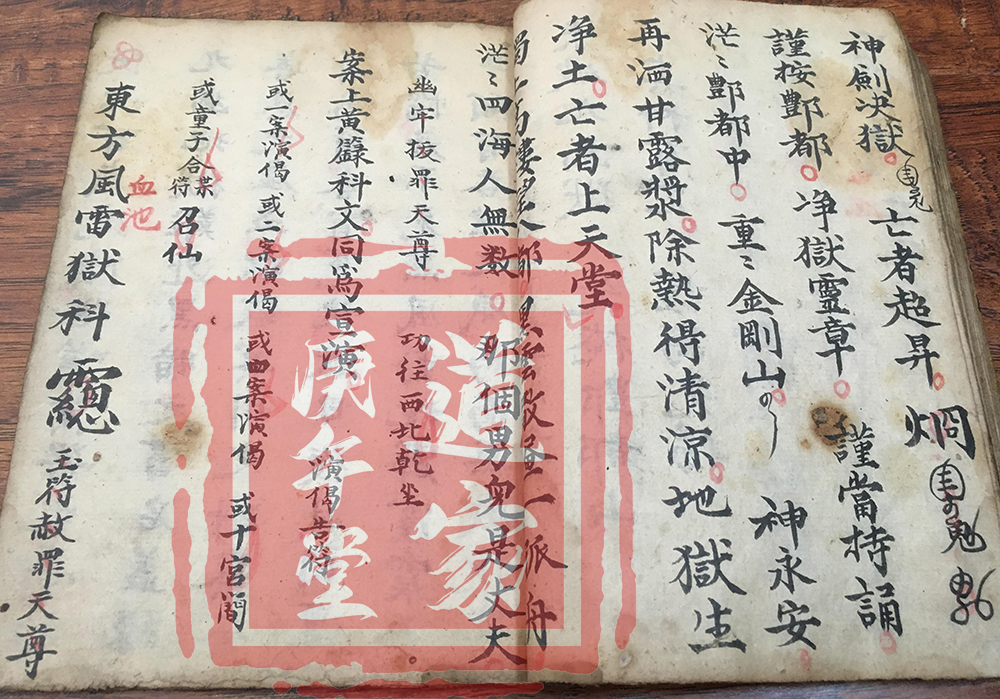 神劍決獄 亡者超昇 炯
謹按酆都 净獄靈章 謹當持誦
茫〻酆都中 重〻金剛山 神永安
再洒甘露漿 除熱得清涼 地獄生
净土 亡者上天堂
茫〻四海人無数 那個男兒是大夫
幽牢拔罪天尊 功往西北乾坐
案上黃籙科文同爲宣演 演偈告符
或一案演偈 或二案演偈 或四案演偈 或十宮閻
或童子合業符召仙
血池
東方風雷獄科 玉符赦罪天尊
道家
庚午堂